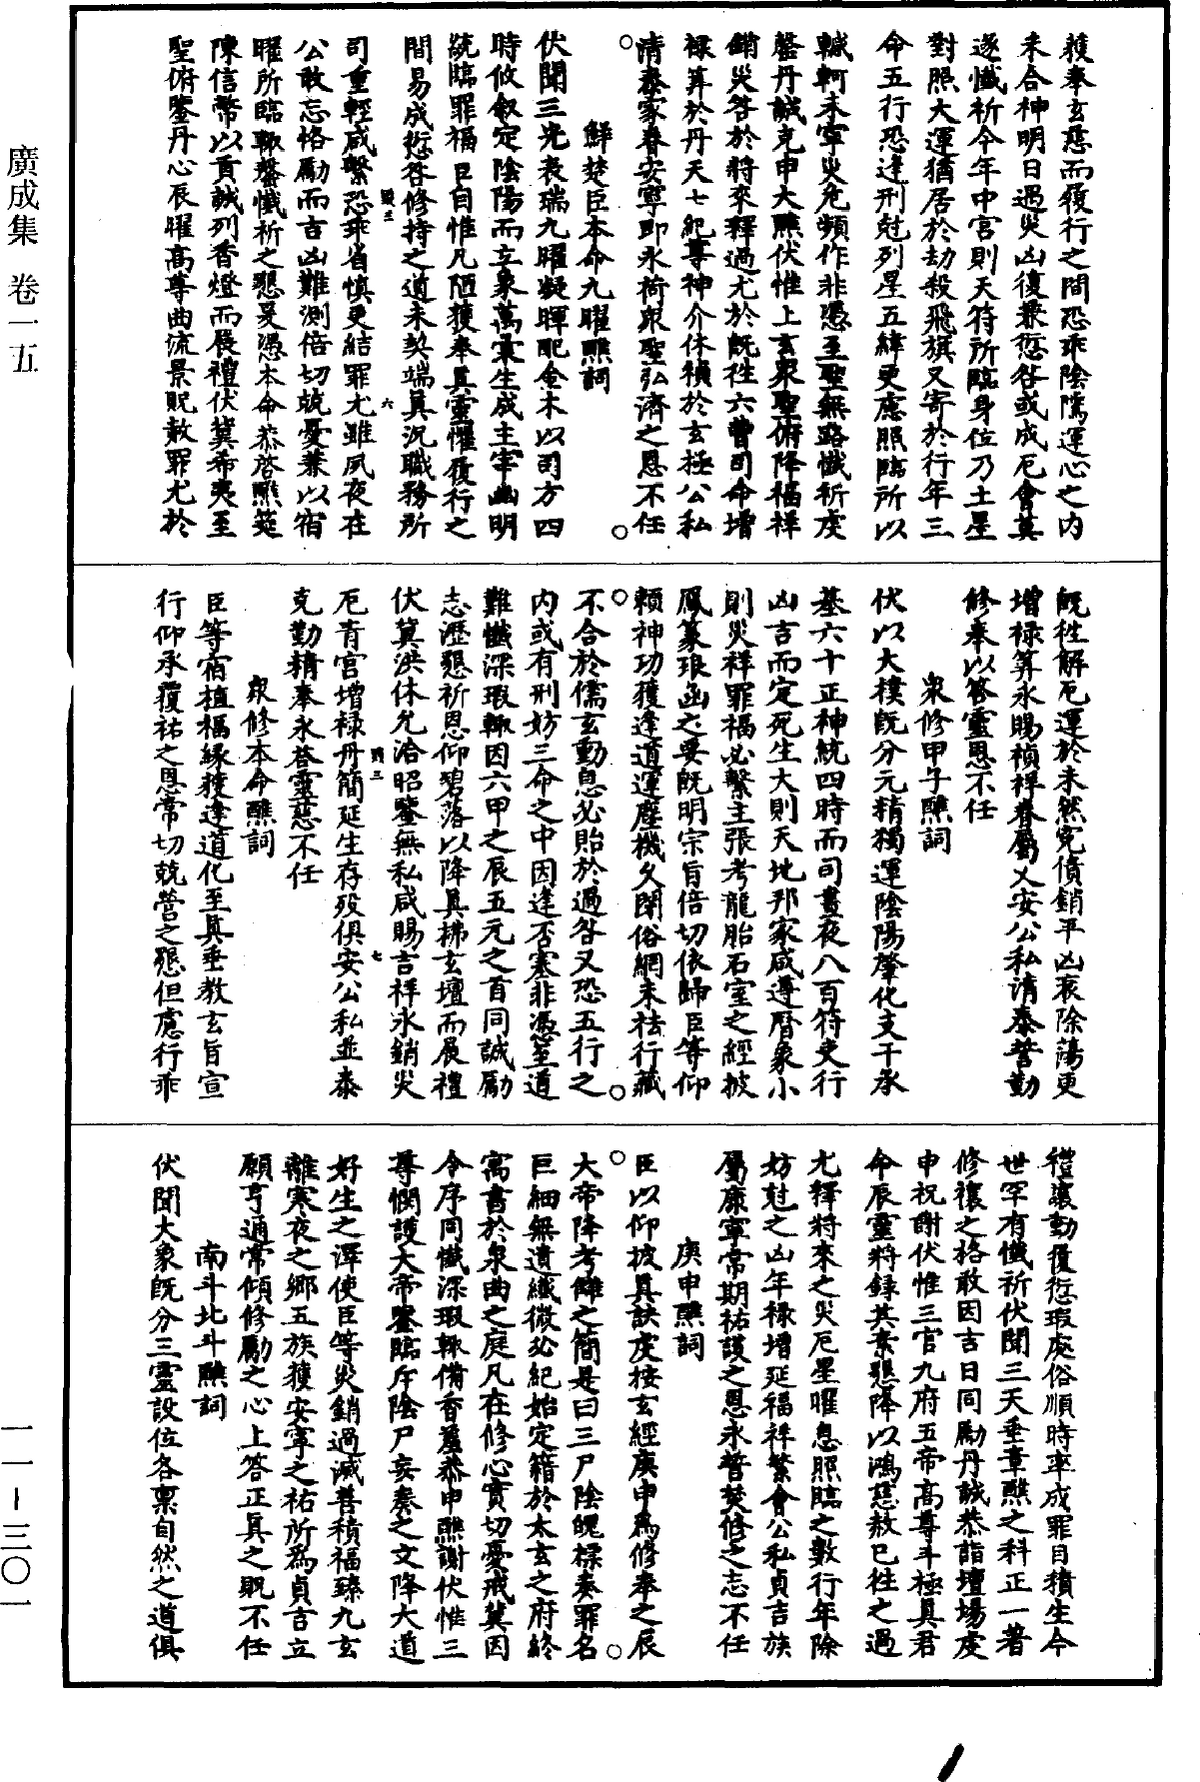 廣成集　卷一五
一一－三〇一
獲奉玄慈而履行之間恐乖陰騭運心之内
未合神明日過災凶復兼愆咎或成厄會莫
遂懺祈今年中宮則天符所臨身位乃土星
對照大運猶居於劫殺飛旗又寄於行年三
命五行恐逢刑尅列星五緯更應照臨所以
轗軻未寧災危頻作非憑至聖無路懺祈虔
罄丹誠克申大醮伏惟上玄衆聖俯降福祥
銷災咎於將來釋過尤於既徃六曹司命增
禄筭於丹天七紀尊神介休禎於玄極公私
清泰家眷安寧即永荷衆聖弘濟之恩不任
鮮楚臣本命九曜醮詞
伏聞三光表瑞九曜凝暉配金木以司方四
時攸叙定陰陽而立象萬彙生成主宰幽明
統臨罪福臣自惟凡陋獲奉真靈懼履行之
間易成愆咎修持之道未契端真況職務所
司重輕咸繫恐乖省慎更結罪尤雖夙夜在
公敢忘恪勵而吉凶難測倍切兢憂兼以宿
曜所臨輒罄懺祈之懇爰憑本命恭啓醮筵
陳信幣以貢誠列香燈而展禮伏冀希夷至
聖俯鑒丹心辰曜高尊曲流景貺赦罪尤於
既徃解厄運於未然寃債銷平凶衰除蕩更
增禄筭永賜禎祥眷屬乂安公私清泰誓勤
修奉以答靈恩不任
衆修甲子醮詞
伏以大樸既分元精獨運陰陽肇化支干承
基六十正神統四時而司晝夜八百符吏行
凶吉而定死生大則天地邦家咸遵曆象小
則災祥罪福必繫主張考龍胎石室之經披
鳳篆琅函之要既明宗旨倍切依歸臣等仰
賴神功獲逢道運塵機久閉俗網未祛行藏
不合於儒玄動息必貽於過咎又恐五行之
内或有刑妨三命之中因逢否塞非憑至道
難懺深瑕輒因六甲之辰五元之首同誠勵
志瀝懇祈恩仰碧落以降真拂玄壇而展禮
伏冀洪休允洽昭鑒無私咸賜吉祥永銷災
厄青宮增禄丹簡延生存歿俱安公私並泰
克勤精奉永荅靈慈不任
衆修本命醮詞
臣等宿植福緣獲逢道化至真垂教玄旨宣
行仰承覆祐之恩常切兢營之懇但慮行乖
禮讓動履愆瑕處俗順時率成罪目積生今
世罕有懺祈伏聞三天垂章醮之科正一著
修禳之格敢因吉日同勵丹誠恭詣壇場虔
申祝謝伏惟三官九府五帝高尊斗極真君
命辰靈將録其素懇降以鴻慈赦已徃之過
尤釋將來之災厄星曜息照臨之數行年除
妨尅之凶年禄增延福祥繁會公私貞吉族
屬康寧常期祐護之恩永誓焚修之志不任
庚申醮詞
臣以仰披真訣虔按玄經庚申爲修奉之辰
大帝降考讎之簡是曰三尸陰魄標奏罪名
巨細無遺纖微必紀始定籍於太玄之府終
寓書於泉曲之庭凡在修心實切憂戒冀因
令序同懺深瑕輒備香羞恭申醮謝伏惟三
尊憫護大帝鑒臨斥陰尸妄奏之文降大道
好生之澤使臣等災銷過滅善積福臻九玄
離寒夜之鄉五族獲安寧之祐所爲貞吉立
願亨通常傾修勵之心上答正真之貺不任
南斗北斗醮詞
伏聞大象既分三靈設位各禀自然之道俱